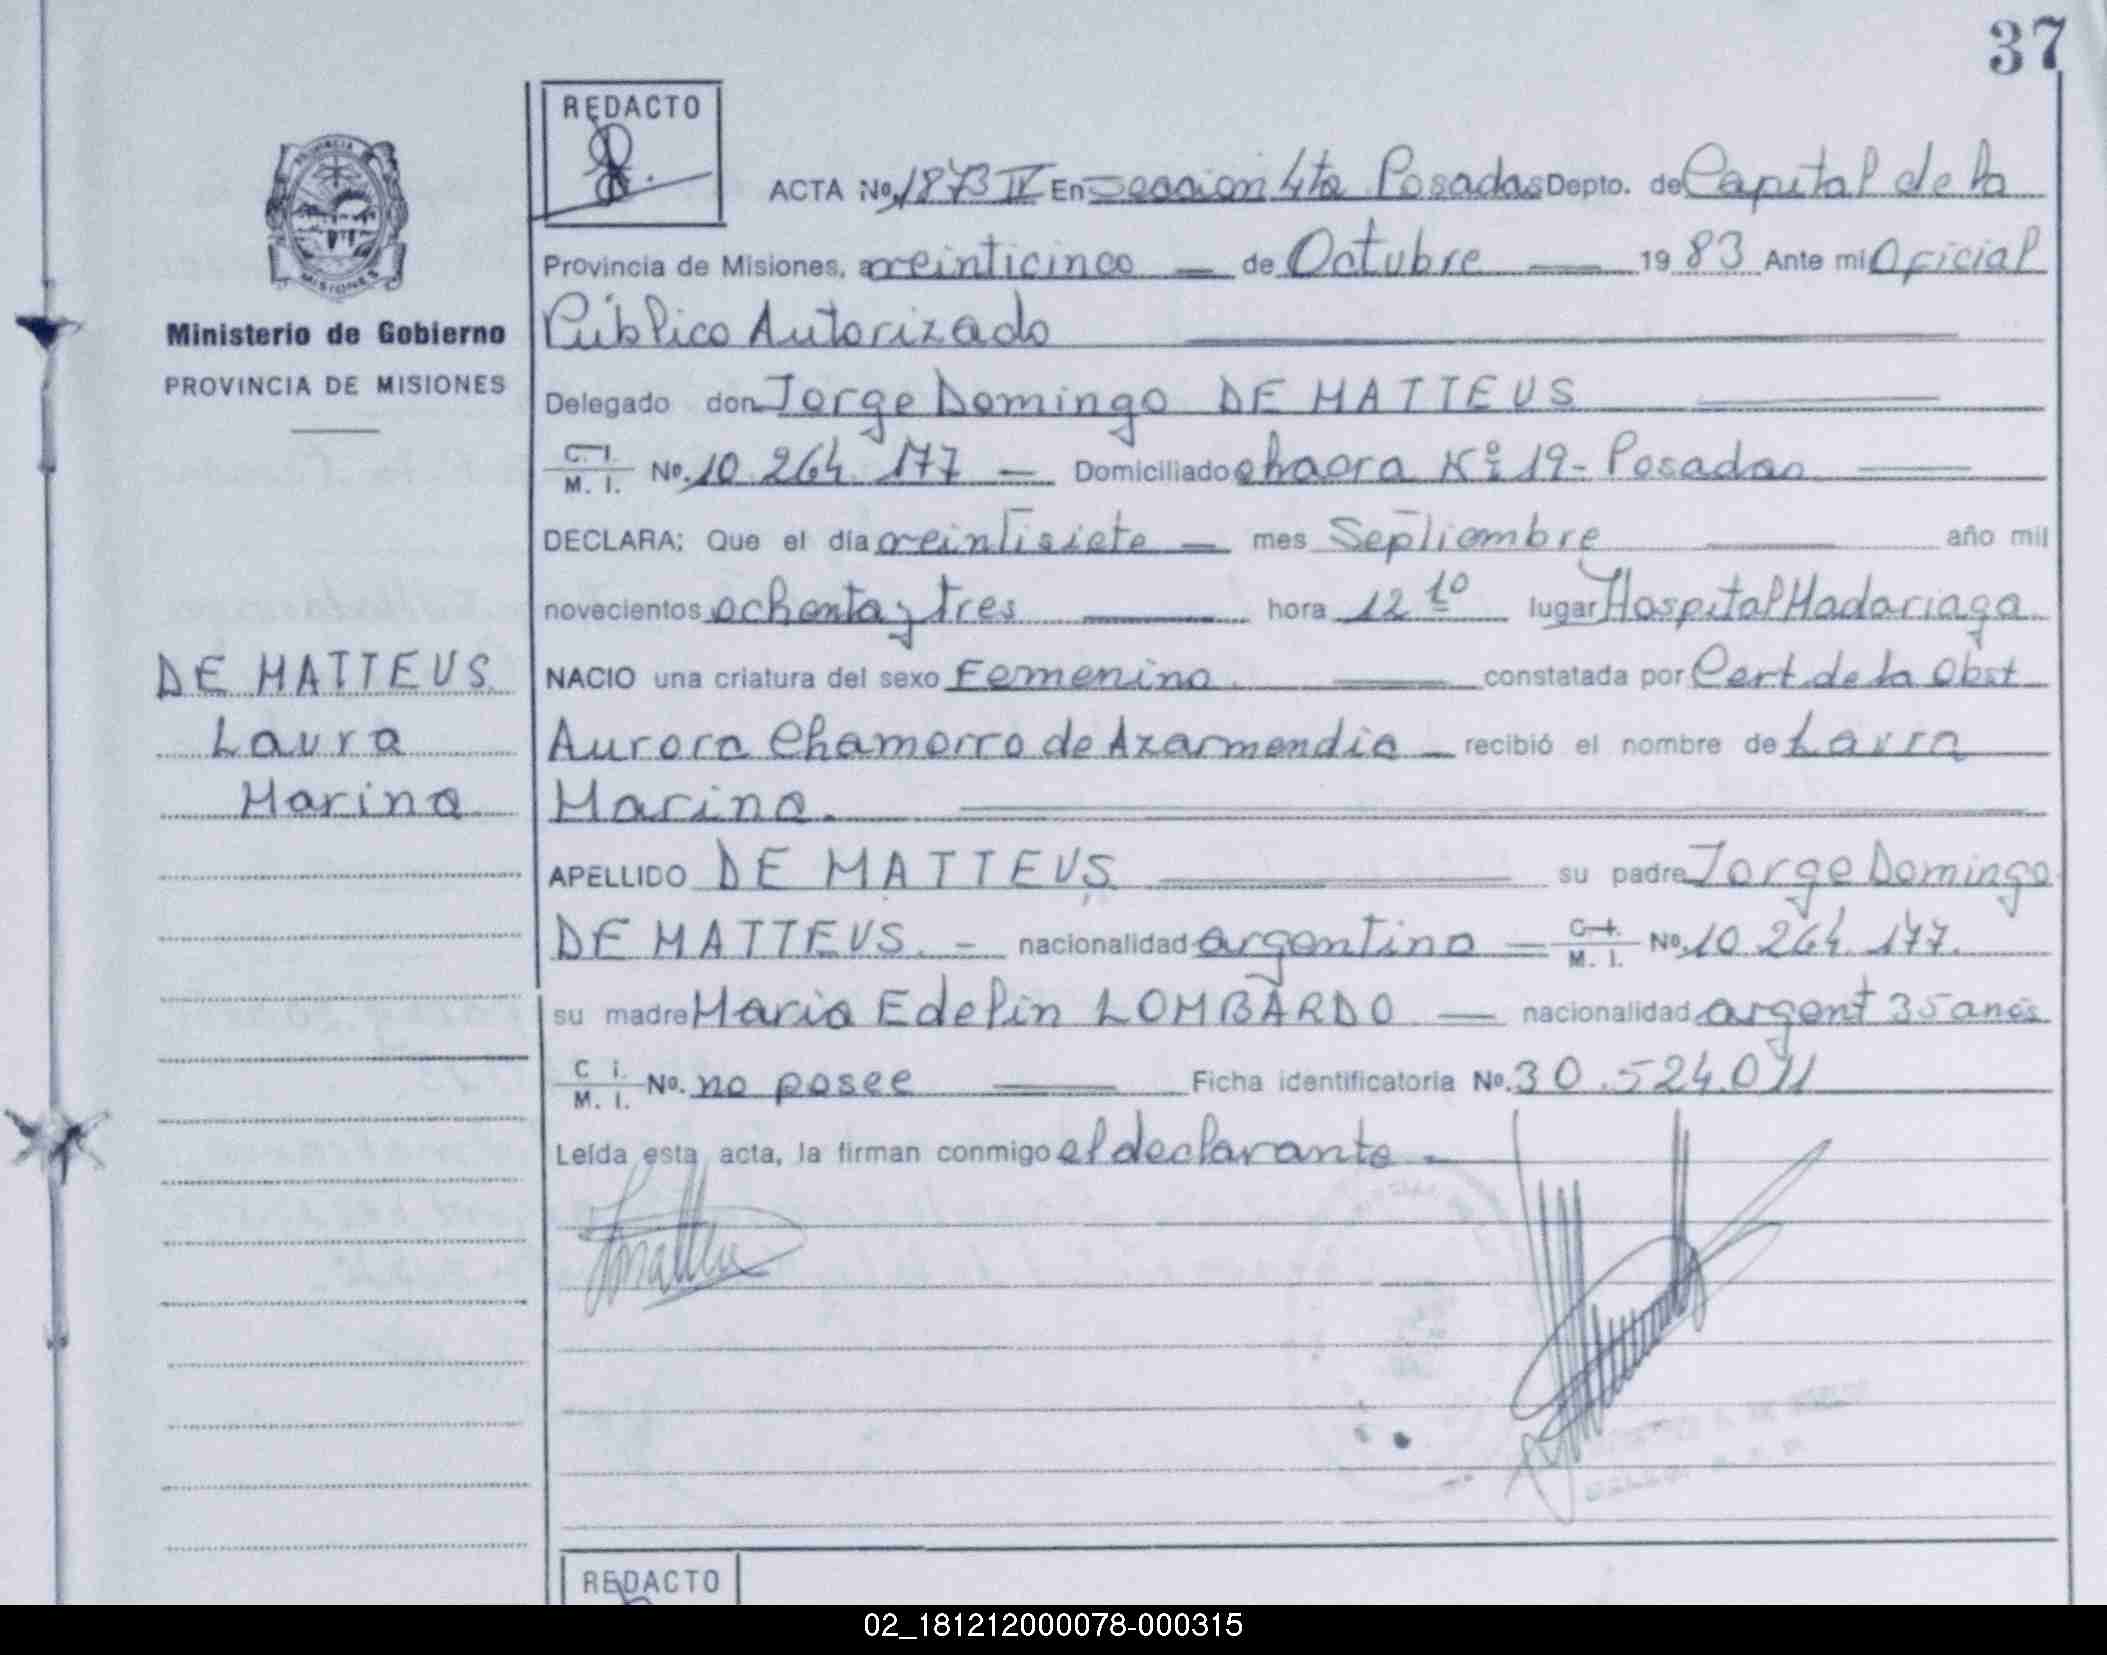 37
REDACTO
ACTA No. 1873 IV En Seccion 4ta Posadas Depto. de Capital de la
Provincia de Misiones, a veinticinco — de Octubre — 1983 Ante mi Oficial
Público Autorizado
Ministerio de Gobierno
PROVINCIA DE MISIONES
Delegado don Jorge Domingo DE MATTEUS
C. I.
M. I. No. 10.264.177 — Domiciliado chacra Nº 19 - Posadas
DECLARA: Que el día veintisiete — mes Septiembre — año mil
novecientos ochenta y tres — hora 12 10 lugar Hospital Madariaga
DE MATTEUS
Laura
Marina
NACIO una criatura del sexo Femenino — constatada por Cert. de la Obst
Aurora Chamorro de Azarmendia — recibió el nombre de Laura
Marina.
APELLIDO DE MATTEUS — su padre Jorge Domingo
DE MATTEUS. — nacionalidad argentino — C. I.
M. I. No. 10.264.177.
su madre Maria Edelin LOMBARDO — nacionalidad argent 35 anos
C i.
M. I. No. no posee — Ficha identificatoria No. 30.524.011
Leída esta acta, la firman conmigo el declarante —
REDACTO
02_181212000078-000315